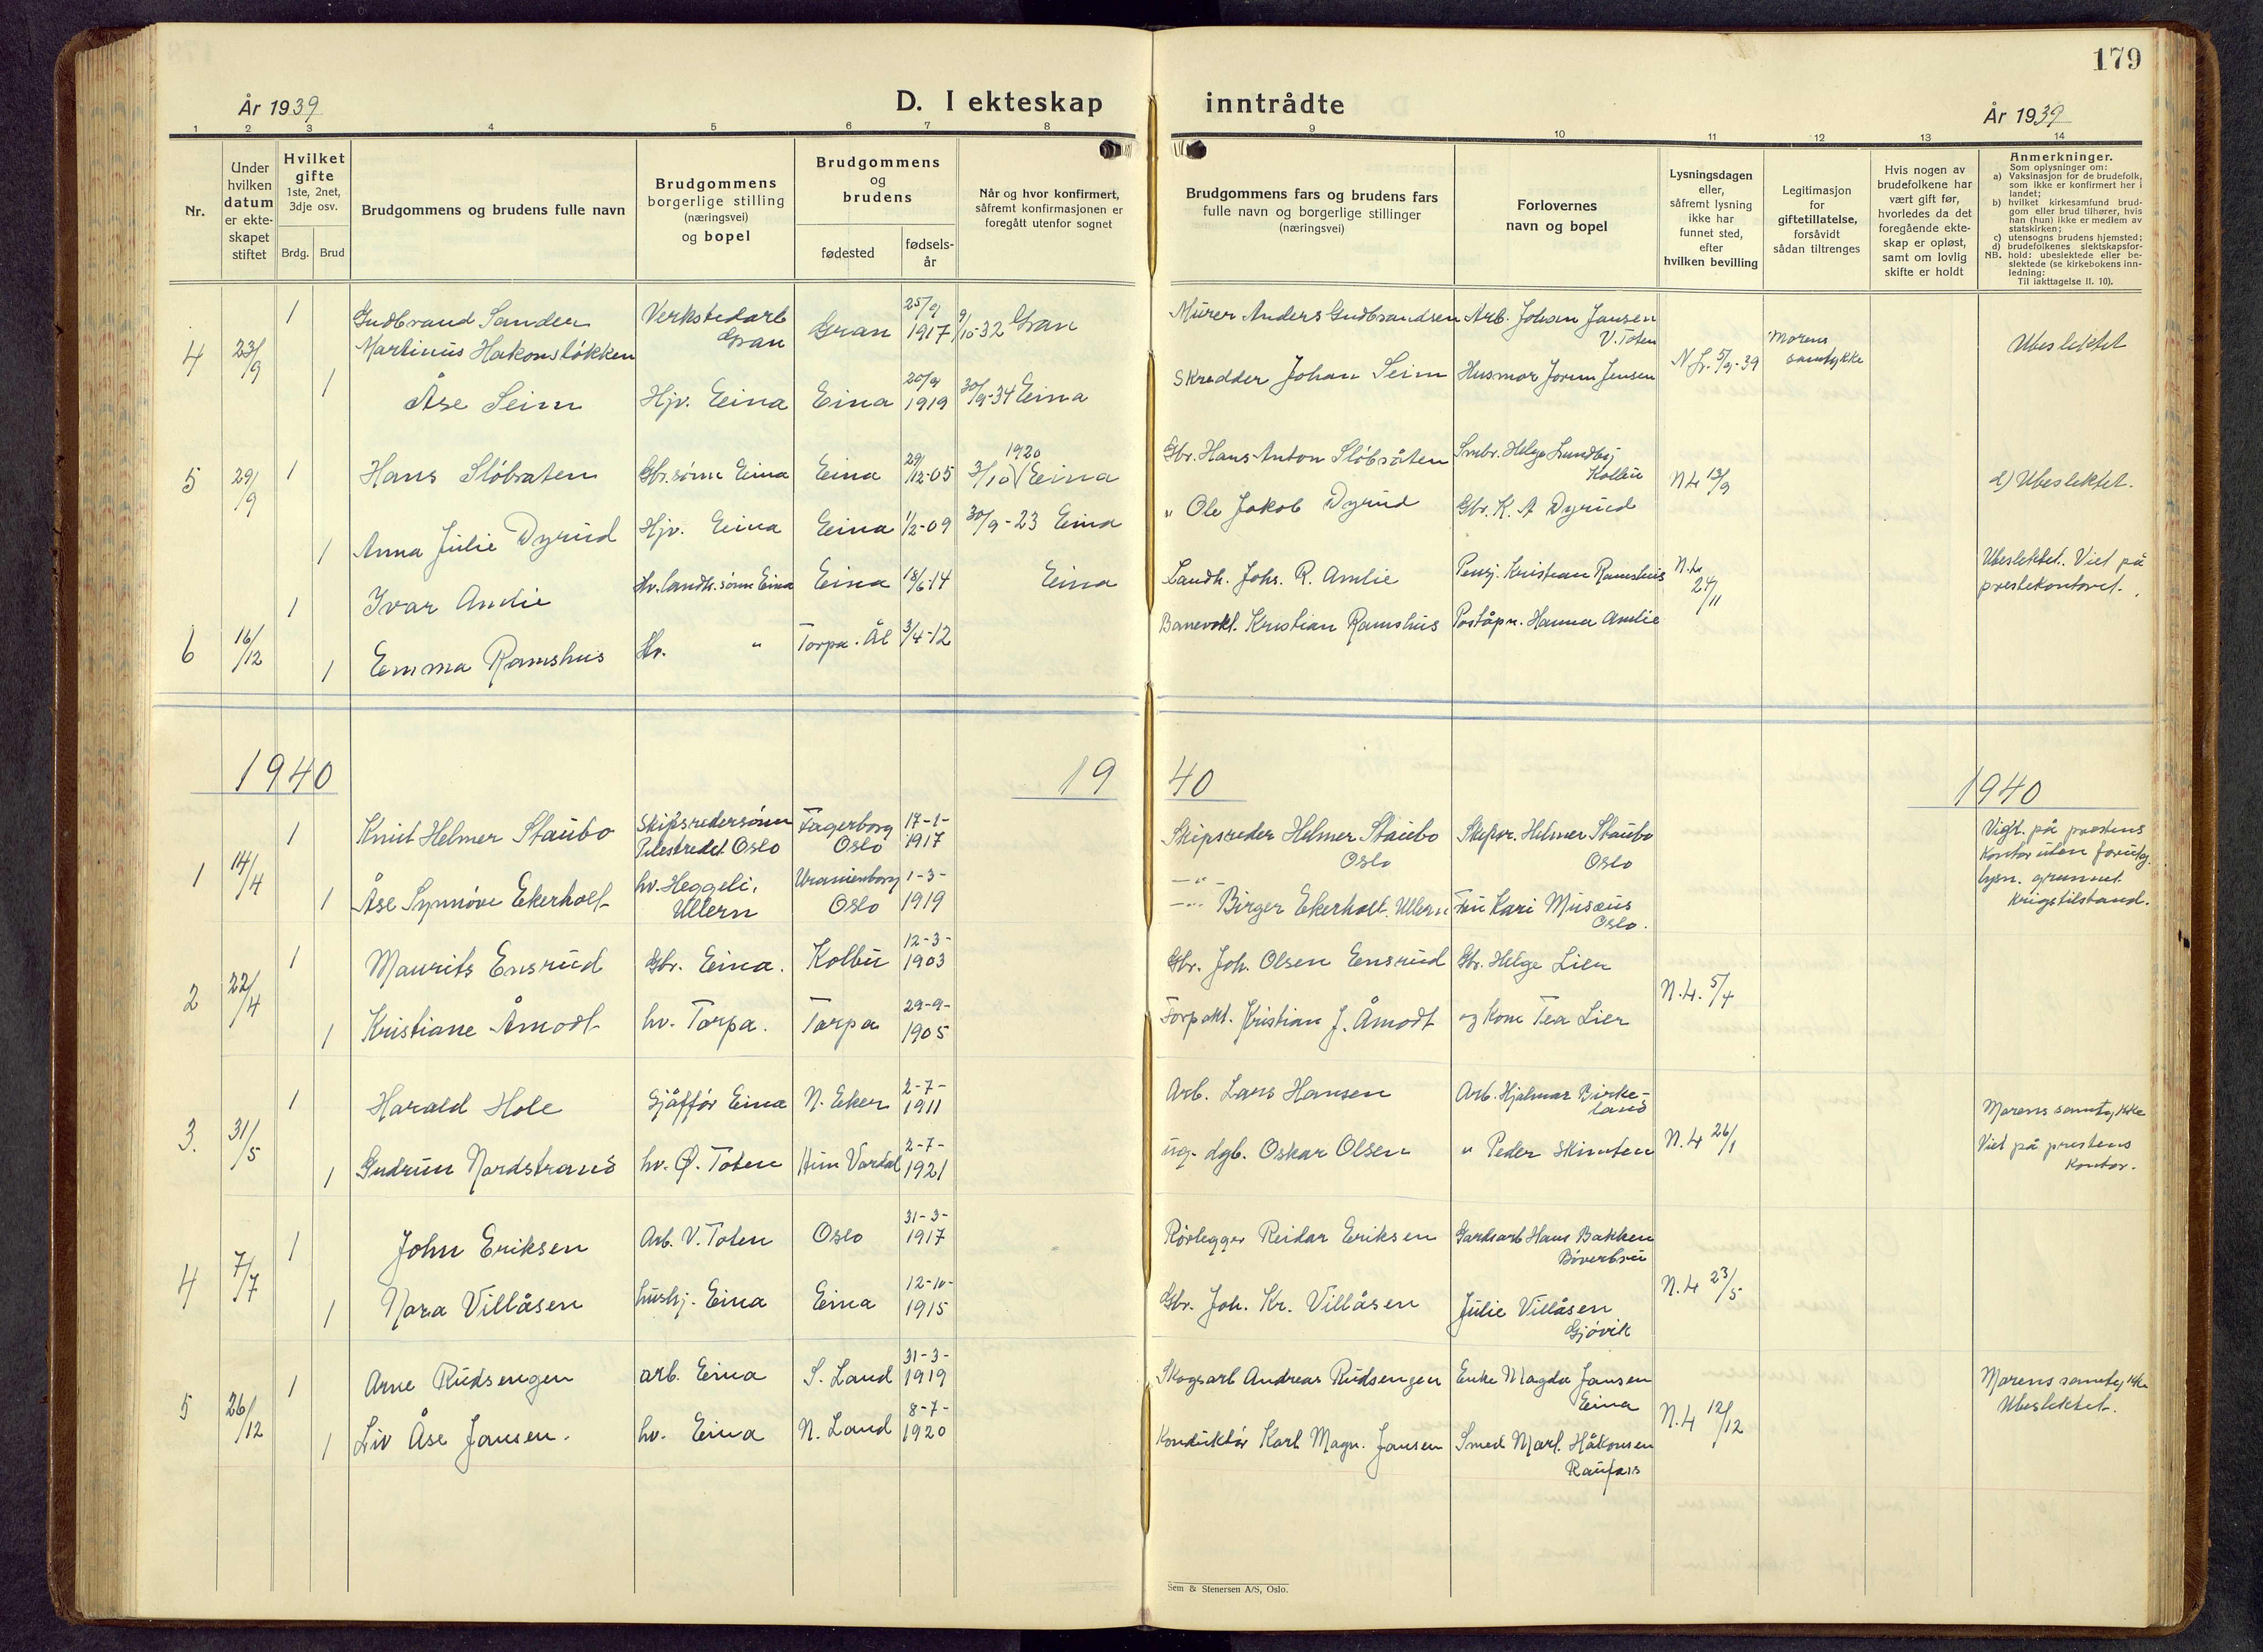 179
År 1939
D. I ekteskap inntrådte
År 1939
1 2 3 4 5 6 7 8 9 10 11 12 13 14
Nr.
Under hvilken datum er ekteskapet stiftet
Hvilket gifte 1ste, 2net, 3dje osv.
Brdg. Brud
Brudgommens og brudens fulle navn
Brudgommens borgerlige stilling (næringsvei) og bopel
Brudgommens og brudens
fødested
fødselsår
Når og hvor konfirmert, såfremt konfirmasjonen er foregått utenfor sognet
Brudgommens fars og brudens fars fulle navn og borgerlige stillinger (næringsvei)
Forlovernes navn og bopel
Lysningsdagen eller, såfremt lysning ikke har funnet sted, efter hvilken bevilling
Legitimasjon for giftetillatelse, forsåvidt sådan tiltrenges
Hvis nogen av brudefolkene har vært gift før, hvorledes da det foregående ekteskap er opløst, samt om lovlig skifte er holdt
Anmerkninger.
Som oplysninger om:
a) Vaksinasjon for de brudefolk, som ikke er konfirmert her i landet;
b) hvilket kirkesamfund brudgom eller brud tilhører, hvis han (hun) ikke er medlem av statskirken;
c) utensogns brudens hjemsted;
d) brudefolkenes slektskapsforhold: ubeslektede eller beslektede (se kirkebokens innledning:
NB. Til iakttagelse II. 10).
4 23/9 1 Gudbrand Sander Martinius Hakonsløkken Verkstedarb Gran Gran 25/9 1917 9/10-32 Gran Murer Anders Gudbrandsen Arb. Johan Jansen V. Toten
1 Åse Seim Hjv. Eina Eina 20/9 1919 30/9-34 Eina Skredder Johan Seim Husmor Jorun Jensen N.L. 5/9-39 Morens samtykke Ubeslektet
5 29/9 1 Hans Slöbraten Gbr.sønn Eina Eina 29/12-05 3/10 1920 Eina Gbr. Hans Anton Slöbråten Smbr. Helge Lundby Kolbu N L 13/9 d) Ubeslektet.
1 Anna Julie Dyrud Hjv. Eina Eina 1/2-09 30/9-23 Eina " Ole Jakob Dyrud Gbr. K. A Dyrud
6 16/12 1 Ivar Amlie Hv. landh. sønn Eina Eina 18/6-14 Eina Landh. Johs. R. Amlie Pensj. Kristian Ramshus N.L. 24/11 Ubeslektet. Viet på prestekontoret.
1 Emma Ramshus Hv. " Torpa. Ål 3/4-12 Banevokt. Kristian Ramshus Poståpn. Hanna Amlie
1940 1940 1940
1 14/4 1 Knut Helmer Staubo Skipsredersønn Pilestredet Oslo Fagerborg Oslo 17-1-1917 Skipsreder Helmer Staubo Oslo Skipsr. Helmer Staubo Oslo Vigt. på prestens kontor uten forutg. lysn. grunnet krigstilstand.
1 Åse Synnøve Ekerholt hv. Heggeli, Ullern Uranienborg Oslo 1-3-1919 —"— Birger Ekerholt. Ullern Fru Kari Musæus Oslo.
2 22/4 1 Maurits Ensrud Gbr. Eina. Kolbu 12-3-1903 Gbr. Joh. Olsen Eensrud Gbr. Helge Lien N.L. 5/4
1 Kristiane Åmodt hv. Torpa. Torpa 29-9-1905 Forpakt. Kristian J. Åmodt og Kone Tea Lier
3. 31/5 1 Harald Hole Sjåffør Eina N. Eker 2-7-1911 Arb. Lars Hansen Arb. Hjalmar Birkeland N.L 26/1 Morens samtykke Viet på prestens kontor.
1 Gudrun Nordstrand hv. Ø. Toten Vardal 2-7-1921 ug. dgb. Oskar Olsen " Peder
4 7/7 1 John Eriksen Arb. V. Toten Oslo 31-3-1917 Rørlegger Reidar Eriksen Gardsarb Hans Bakken Bøverbru N.L 23/5
1 Nora Villåsen hushj. Eina Eina 12-10-1915 Gbr. Joh. Kr. Villåsen Julie Villåsen Gjøvik
5 26/12 1 Arne Rudsengen arb. Eina S. Land 31-3-1919 Skogsarb Andreas Rudsengen Enke Magda Jansen Eina N.L 12/12 Morens samtykke Ubeslektet.
1 Liv Åse Jansen. hv. Eina N. Land 8-7-1920 Konduktør Karl Magn. Jansen Smed Marl. Håkonsen Raufoss
Sem & Stenersen A/S, Oslo.